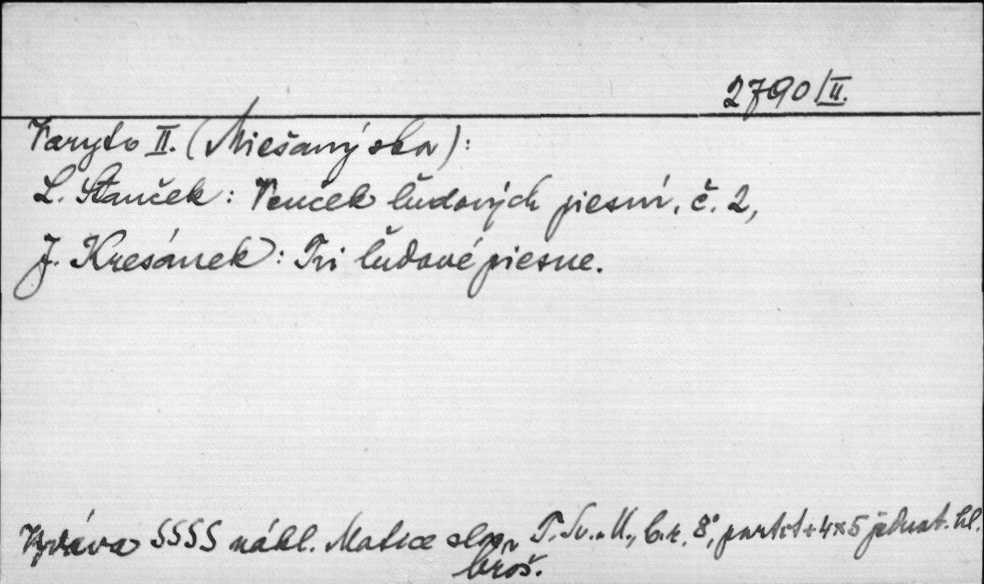 2790/II.
Varyto II. (Miešaný sbor):
L. Stanček: Venček ľudových piesní, č. 2,
J. Kresánek: Tri ľudové piesne.
Vydáva SSSS nákl. Matice slov. T. Sv. M., b. r. 8°, part. + 4x5 jednot. hl.
brož.